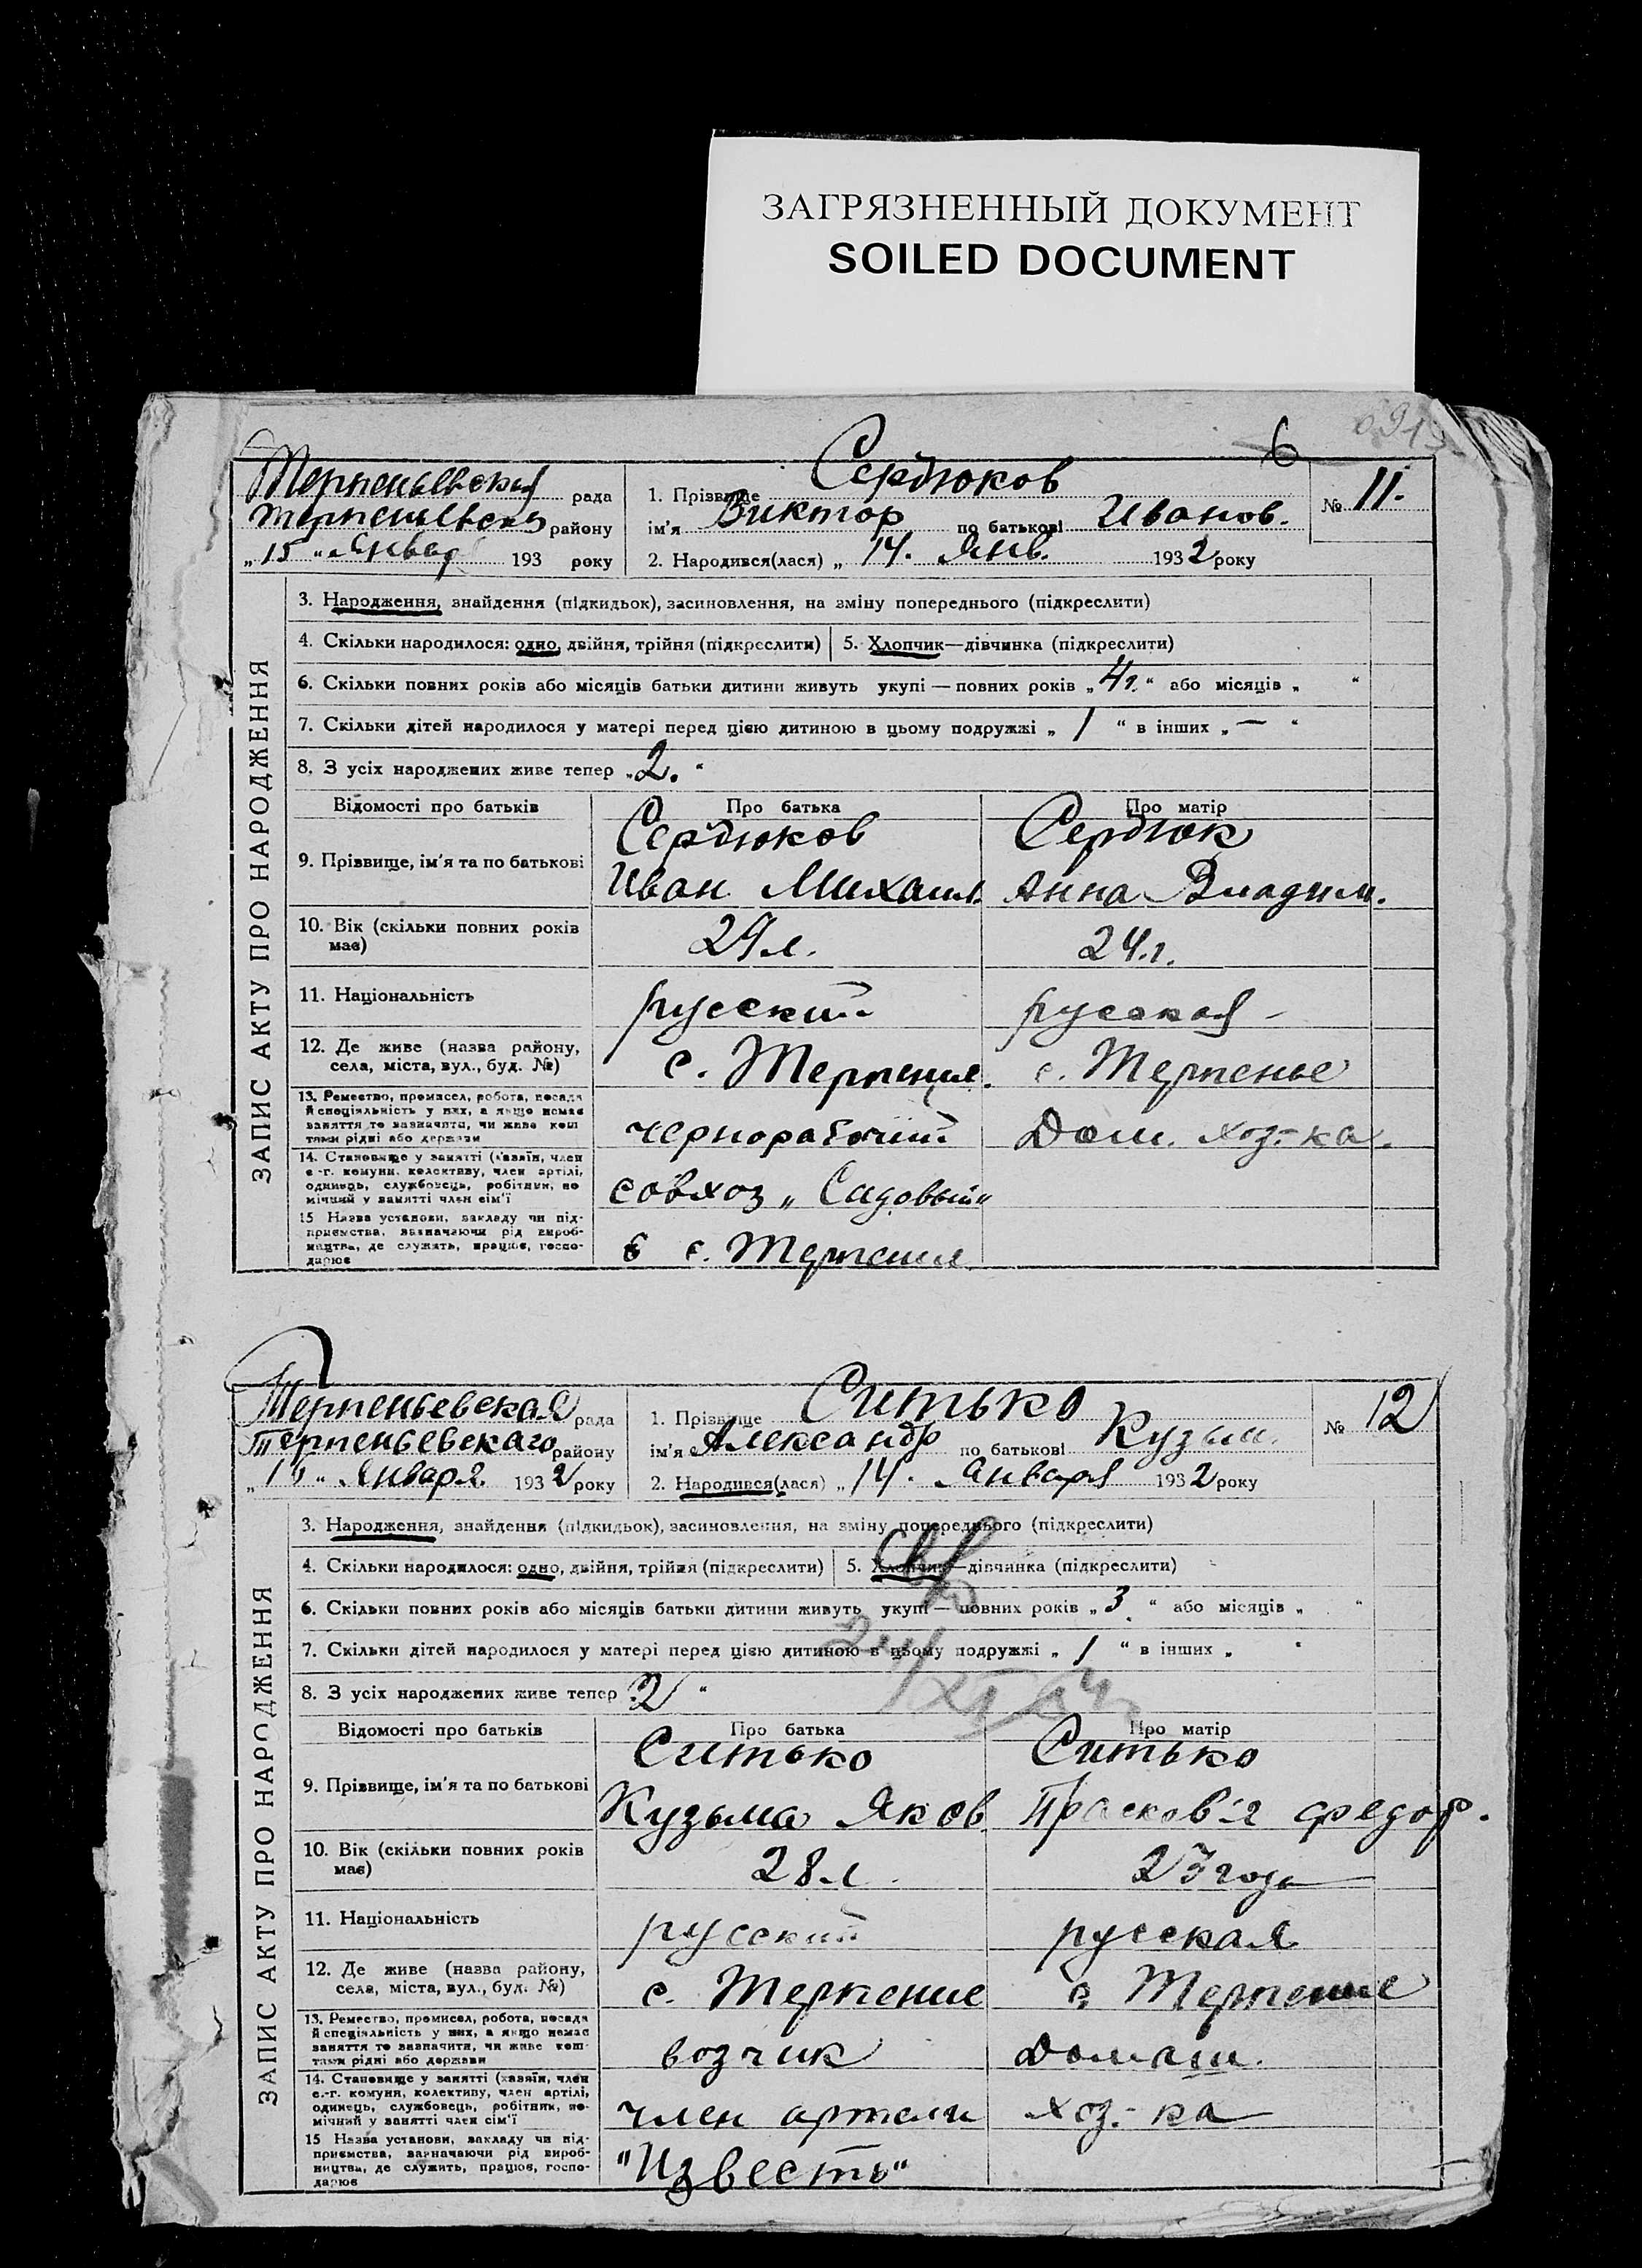 ЗАГРЯЗНЕННЫЙ ДОКУМЕНТ
SOILED DOCUMENT
6
Терпеньевская рада
Терпеньевск району
„15“ Январ 193 року
1. Прізвище Сердюков
ім'я Виктор по батькові Иванов.
2. Народився(лася) „14. Янв. 1932 року
№ 11.
ЗАПИС АКТУ ПРО НАРОДЖЕННЯ
3. Народження, знайдення (підкидьок), засиновлення, на зміну попереднього (підкреслити)
4. Скільки народилося: одно, двійня, трійня (підкреслити) 5. Хлопчик—дівчинка (підкреслити)
6. Скільки повних років або місяців батьки дитини живуть укупі — повних років „4г.“ або місяців „ “
7. Скільки дітей народилося у матері перед цією дитиною в цьому подружжі „1“ в інших „—“
8. З усіх народжених живе тепер „2.“
Відомості про батьків Про батька Про матір
9. Прізвище, ім'я та по батькові
Сердюков Сердюк
Иван Михаил. Анна Владим.
10. Вік (скільки повних років має) 29 л. 24.г.
11. Національність русский русская
12. Де живе (назва району, села, міста, вул., буд. №) с. Терпения. с. Терпенье
13. Ремество, промисел, робота, посада й спеціяльність у них, а якщо немає заняття то зазначити, чи живе коштами рідні або держави
чернорабочий Дом. хоз-ка.
14. Становище у занятті (хазяїн, член с.-г. комуни, колективу, член артілі, одинець, службовець, робітник, помічний у занятті член сім'ї
совхоз „Садовый“
15 Назва установи, закладу чи підприємства, зазначаючи рід виробництва, де служить, працює, господарює
в с. Терпения
Терпеньевская рада
Терпеньевскаго району
Января 1932 року
1. Прізвище Ситько
ім'я Александр по батькові Кузьм.
2. Народився(лася) „14. Января 1932 року
№ 12
ЗАПИС АКТУ ПРО НАРОДЖЕННЯ
3. Народження, знайдення (підкидьок), засиновлення, на зміну попереднього (підкреслити)
4. Скільки народилося: одно, двійня, трійня (підкреслити) 5. Хлопчик—дівчинка (підкреслити)
6. Скільки повних років або місяців батьки дитини живуть укупі — повних років „3“ або місяців „ “
7. Скільки дітей народилося у матері перед цією дитиною в цьому подружжі „1“ в інших „ “
8. З усіх народжених живе тепер „2“
Відомості про батьків Про батька Про матір
9. Прізвище, ім'я та по батькові
Ситько Ситько
Кузьма Яков. Прасков'я Федор.
10. Вік (скільки повних років має) 28 л. 23 года
11. Національність русский русская
12. Де живе (назва району, села, міста, вул., буд. №) с. Терпение с. Терпение
13. Ремество, промисел, робота, посада й спеціяльність у них, а якщо немає заняття то зазначити, чи живе коштами рідні або держави
возчик Домаш.
14. Становище у занятті (хазяїн, член с.-г. комуни, колективу, член артілі, одинець, службовець, робітник, помічний у занятті член сім'ї
член артели хоз.-ка
15 Назва установи, закладу чи підприємства, зазначаючи рід виробництва, де служить, працює, господарює
"Известь"